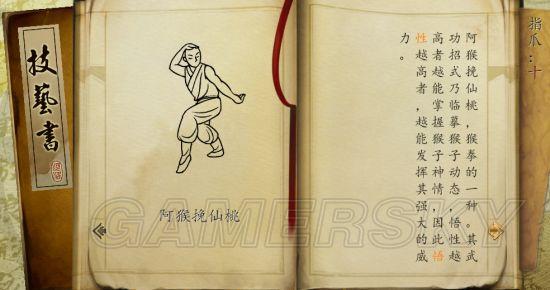 技藝書
阿猴挽仙桃
指爪：十
阿猴挽仙桃，猴拳的一種。其武
功招式乃臨摹猴子動态，悟性越
高者越能掌握猴子神情，因此悟
性越高者，越能发揮其强大的威
力。
GAMERSKY